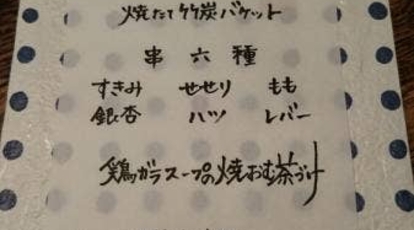 焼たて竹炭バケット
串六種
すきみ せせり もも
銀杏 ハツ レバー
鶏ガラスープの焼おむ茶づけ